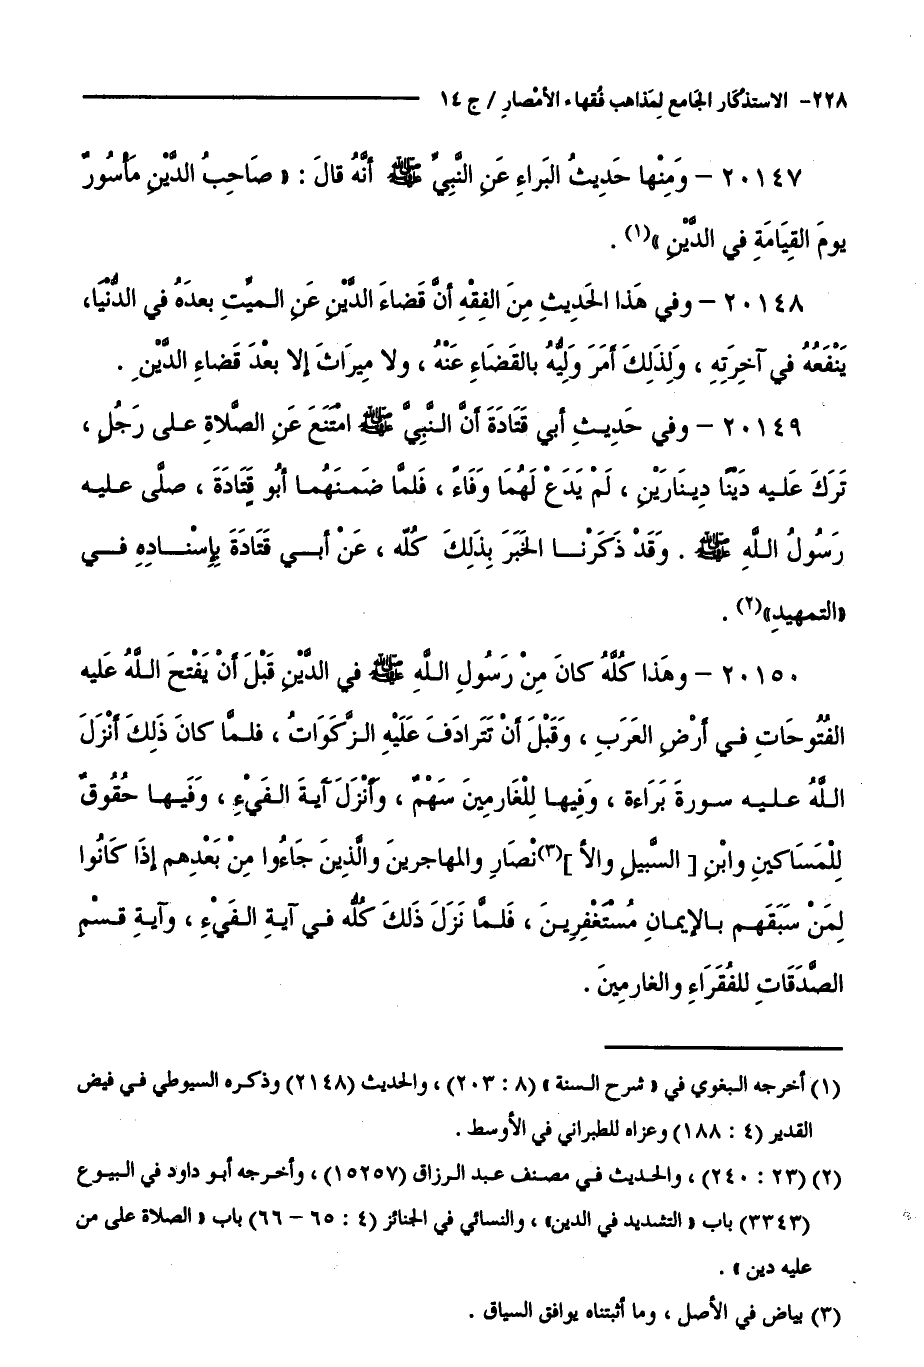 ٢٢٨- الاستذكار الجامع لِمَذاهب فُقهاء الأمْصارِ / ج ١٤
٢٠١٤٧ – وَمِنْها حَدِيثُ البَراءِ عَنِ النَّبِيِّ ﷺ أنَّهُ قالَ : « صَاحِبُ الدَّيْنِ مَأسُورٌ
يومَ القِيَامَةِ في الدَّيْنِ »(١) .
٢٠١٤٨ – وفي هَذا الحَديثِ مِنَ الفِقْهِ أنَّ قَضاءَ الدَّيْنِ عَنِ الميِّتِ بعدَهُ في الدُّنْيَا،
يَنْفَعُهُ في آخِرَتِهِ ، وَلِذَلِكَ أَمَرَ وَلِيَّهُ بالقَضَاءِ عَنْهُ ، ولا مِيرَاثَ إلا بعْدَ قَضاءِ الدَّيْنِ .
٢٠١٤٩ – وفي حَديثِ أبي قَتَادَةَ أنَّ النَّبِيَّ ﷺ امْتَنَعَ عَنِ الصَّلاةِ على رَجُلٍ ،
تَرَكَ عَليه دَيْنًا دِينَارَيْنِ ، لَمْ يَدَعْ لَهُمَا وَفَاءً ، فَلمَّا ضَمنَهُما أبُو قَتَادَةَ ، صلَّى عليه
رَسُولُ اللَّهِ ﷺ . وَقَدْ ذَكَرْنا الخَبَرَ بِذَلِكَ كُلّه ، عَنْ أبي قَتَادَةَ بِإسْنادِهِ في
«التمهيدِ»(٢) .
٢٠١٥٠ – وهَذا كُلُّهُ كانَ مِنْ رَسُولِ اللَّهِ ﷺ في الدَّيْنِ قَبْلَ أنْ يَفْتحَ اللَّهُ عَليه
الفُتُوحَاتِ في أرْضِ العَرَبِ ، وَقَبْلَ أنْ تَتَرادَفَ عَلَيْهِ الزَّكَوَاتُ ، فلمَّا كانَ ذَلِكَ أنْزَلَ
اللَّهُ عليه سورةَ بَرَاءة ، وَفِيها لِلْغَارمِينَ سَهْمٌ ، وَأنْزَلَ آيةَ الفَيْءِ ، وَفَيها حُقُوقٌ
لِلْمَسَاكينِ وابْنِ [ السَّبيلِ والأ ](٣)نْصَارِ والمهاجرينَ والَّذِينَ جَاءُوا مِنْ بَعْدِهم إذَا كَانُوا
لِمَنْ سَبَقَهم بالإيمانِ مُسْتَغْفِرِينَ ، فَلمَّا نَزَلَ ذَلكَ كُلُّه في آيةِ الفَيْءِ ، وآيةِ قسْمِ
الصَّدَقَاتِ للفُقَرَاءِ والغارمِينَ .
(١) أخرجه البغوي في « شرح السنة » (٨ : ٢٠٣) ، والحديث (٢١٤٨) وذكره السيوطي في فيض
القدير (٤ : ١٨٨) وعزاه للطبراني في الأوسط .
(٢) (٢٣ : ٢٤٠) ، والحديث في مصنف عبد الرزاق (١٥٢٥٧) ، وأخرجه أبو داود في البيوع
(٣٣٤٣) باب « التشديد في الدين» ، والنسائي في الجنائز (٤ : ٦٥ – ٦٦) باب « الصلاة على من
عليه دين » .
(٣) بياض في الأصل ، وما أثبتناه يوافق السياق .